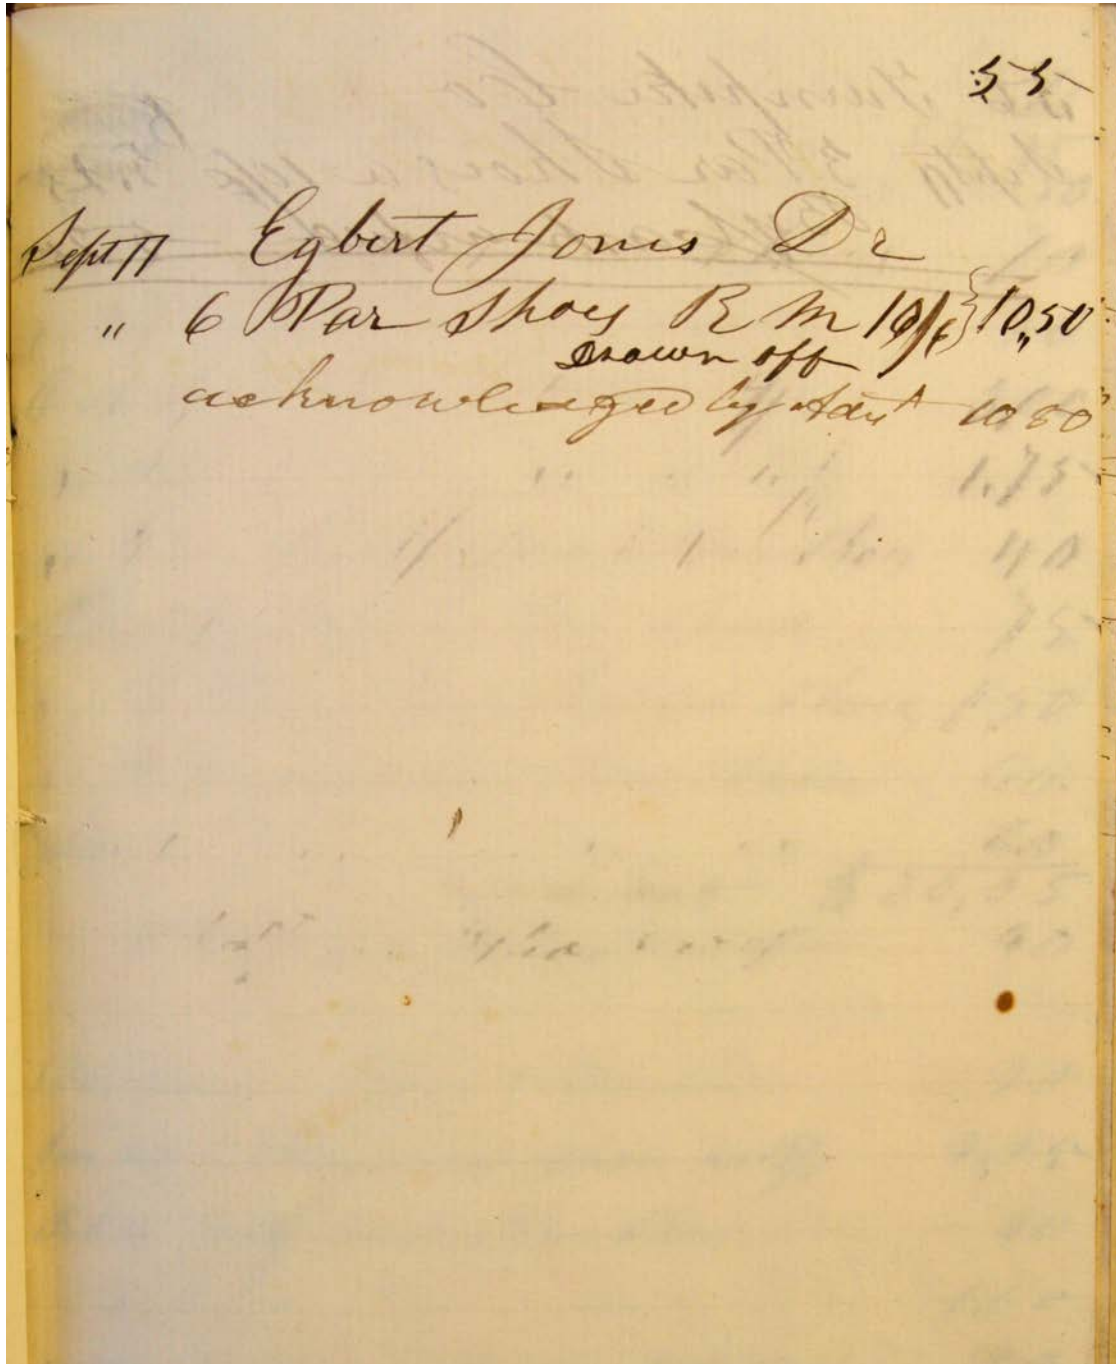 55
Sept 11 Egbert Jones Dr
" 6 Par Shoes R M 10/6 } 10,50
drawn off
acknowledged by Admt 10 50